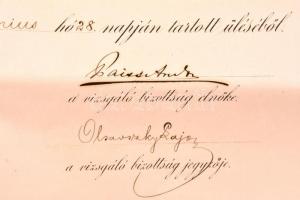 rius hó 28. napján tartott üléséből.
a vizsgáló bizottság elnöke.
Olsavszky Lajos
a vizsgáló bizottság jegyzője.